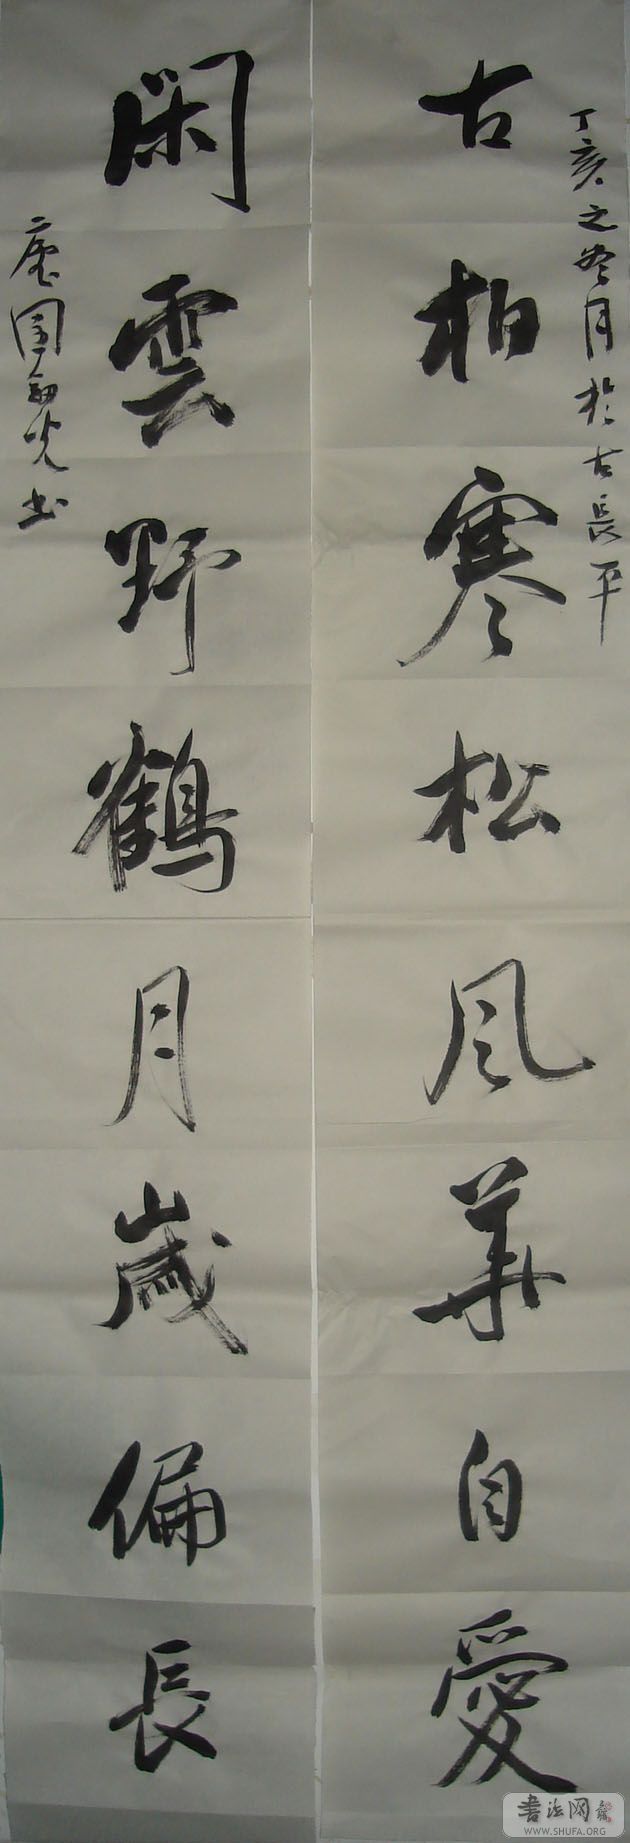 丁亥之冬月於古長平
古柏寒松風華自愛
閑雲野鶴月歲偏長
書法网
WWW.SHUFA.ORG